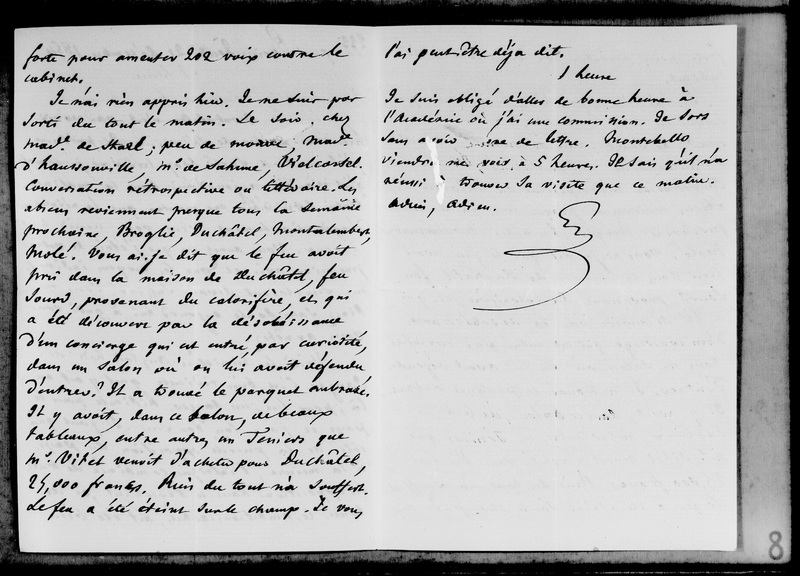 forte pour amenter 202 voix contre le
cabinet.
Je n'ai rien appris hier. Je ne suis pas
sorti du tout le matin. Le soir, chez
Mad.e de Stael; peu de monde, Mad.e
d'haussonville, Mr. de Sahune, Vielcastel.
Conversation rétrospective ou littéraire. Les
absens reviennent presque tous la semaine
prochaine, Broglie, Duchâtel, Montalembert,
Molé. Vous ai-je dit que le feu avoit
pris dans la maison de Duchâtel, feu
sourd, provenant du calorifère, et qui
a été découvert par la désobéissance
d'un concierge qui est entré, par curiosité,
dans un salon où on lui avoit défendu
d'entrer? Il a trouvé le parquet embrasé.
Il y avoit, dans ce salon, de beaux
tableaux, entre autres un Teniers que
Mr. Vitet venoit d'acheter pour Duchâtel,
25,000 francs. Rien du tout n'a souffert.
Le feu a été éteint sur le champ. Je vous
l'ai peut être déja dit.
1 heure
Je suis obligé d'aller de bonne heure à
l'Académie où j'ai une commission. Je sors
sans avoir de lettre. Montebello
viendra me voir à 5 heures. Il sait qu'il n'a
réussi à trouver sa visite que ce matin.
Adieu, Adieu.
8